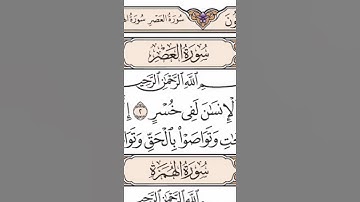 سُورَةُ العَصْرِ سُورَةُ
سُورَةُ العَصْرِ
ٱللَّهِ ٱلرَّحْمَٰنِ ٱلرَّحِيمِ
لْإِنسَٰنَ لَفِى خُسْرٍ ٢ إِلَّا
وَتَوَاصَوْا۟ بِٱلْحَقِّ
سُورَةُ الهُمَزَةِ
ٱللَّهِ ٱلرَّحْمَٰنِ ٱلرَّحِيمِ